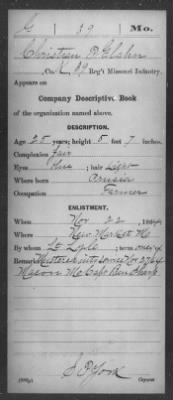 G 39 Mo.
Christian
Co. 39 Reg't Missouri Infantry.
Appears on
Company Descriptive Book
of the organization named above.
DESCRIPTION.
Age 25 years; height 5 feet 7 inches.
Complexion Fair
Eyes Blue; hair Light
Where born Prussia
Occupation Farmer
ENLISTMENT.
When Nov 22, 186
Where New Market Mo
By whom Lt. Lyle; term one y's
Remarks Mustered into service Nov 27/64
Macon Mo Capt Ben Sharp
S P York
Copyist.